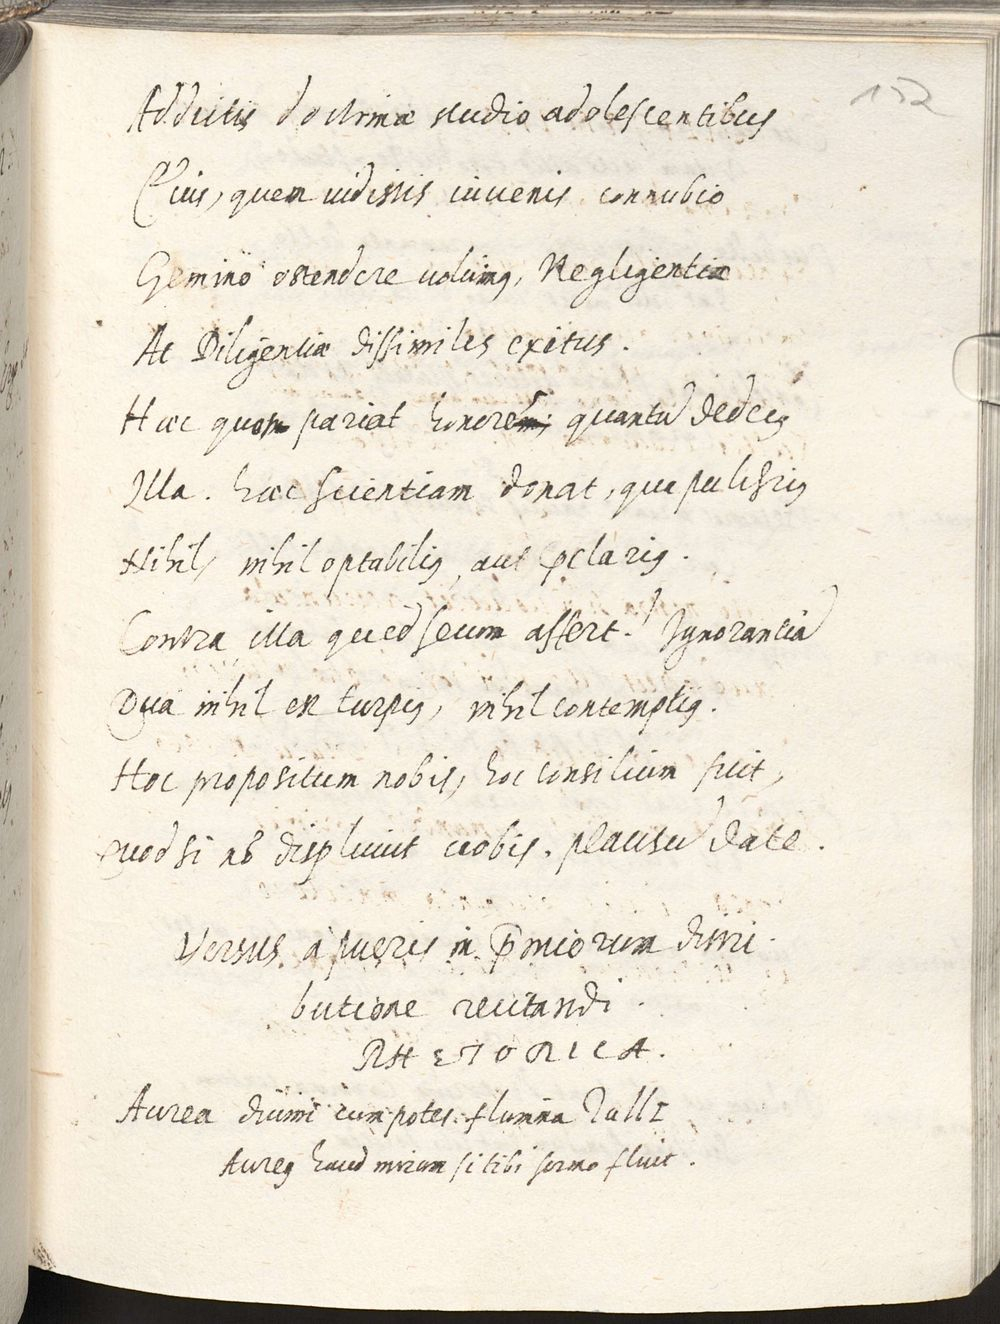 152
Addictis doctrinæ studio adolescentibus
Eius, quem vidistis iuvenis connubio
Gemino ostendere volumꝰ, Negligentiæ
At Diligentiæ dissimiles exitus.
Hæc quem pariat honorem, quantū dedecꝰ
Illa. hæc scientiam donat, qua pulchriꝰ
Nihil, nihil optabiliꝰ, aut p̄clariꝰ.
Contra illa quid secum affert? Ignorantiā
Qua nihil est turpiꝰ, nihil contemptiꝰ.
Hoc propositum nobis, hoc consilium fuit,
Quod si nō displicuit vobis. plausū date.
Versus à pueris in p̄miorum distri
butione recitandi.
RHETORICA.
Aurea divini cum potes flumina Tulli
Aureꝰ haud mirum si tibi sermo fluit.